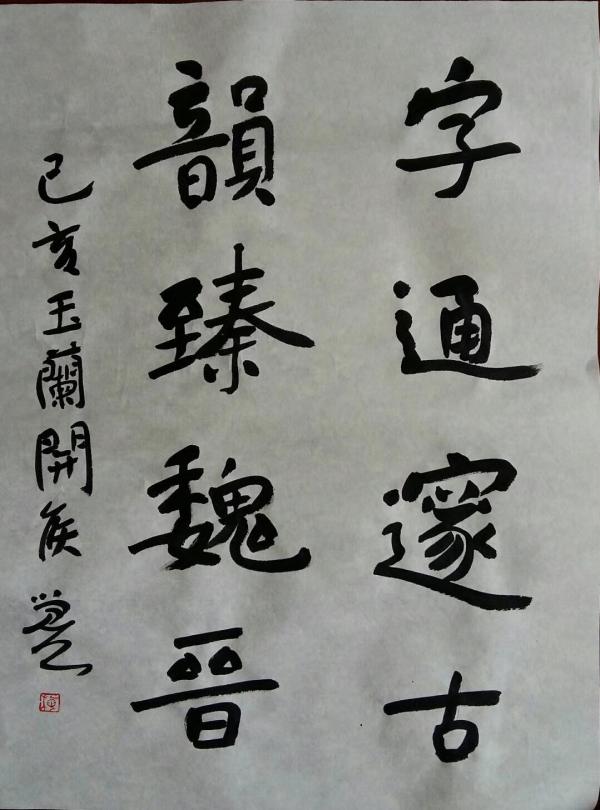 字通邃古
韻臻魏晉
己亥玉蘭開矦